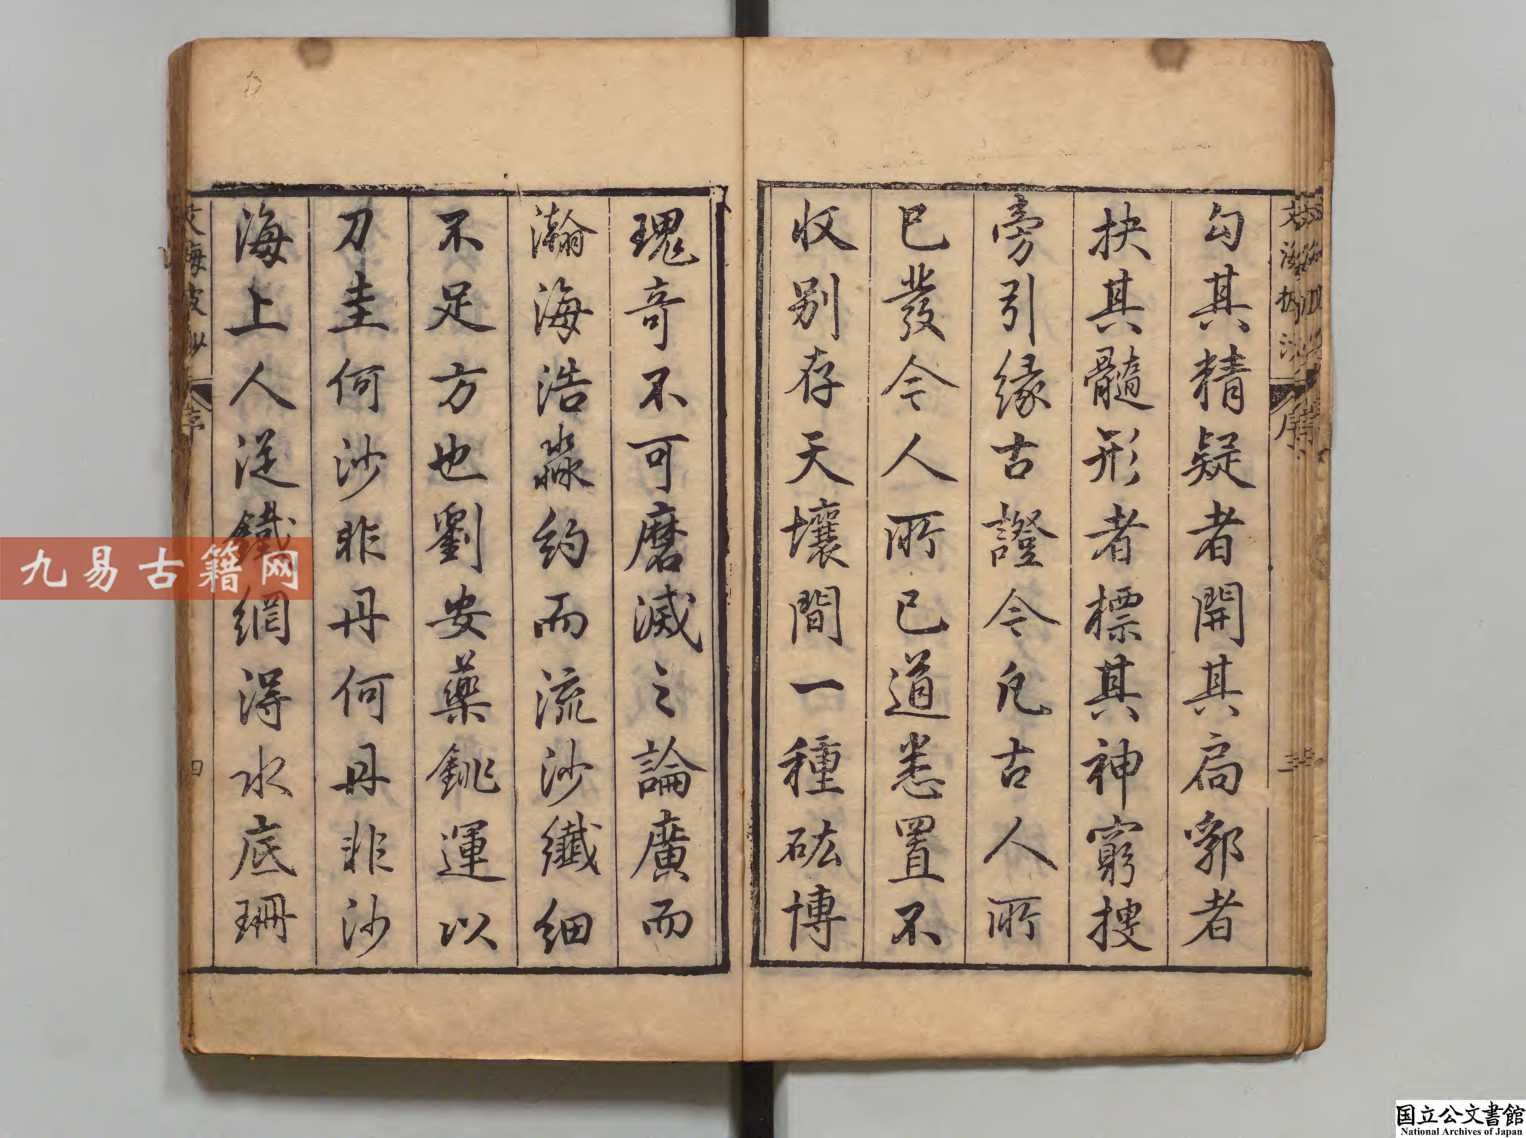 勾其精疑者開其扃鄣者
抉其髓形者標其神窮搜
旁引緣古證今凡古人所
已發今人所已道悉置不
收别存天壤間一種砿博
瑰奇不可磨滅之論廣而
瀚海浩淼約而流沙纖細
不足方也劉安藥銚運以
刀圭何沙非丹何丹非沙
海上人從鐵網得水底珊
序
三
四
九易古籍网
国立公文書館
National Archives of Japan